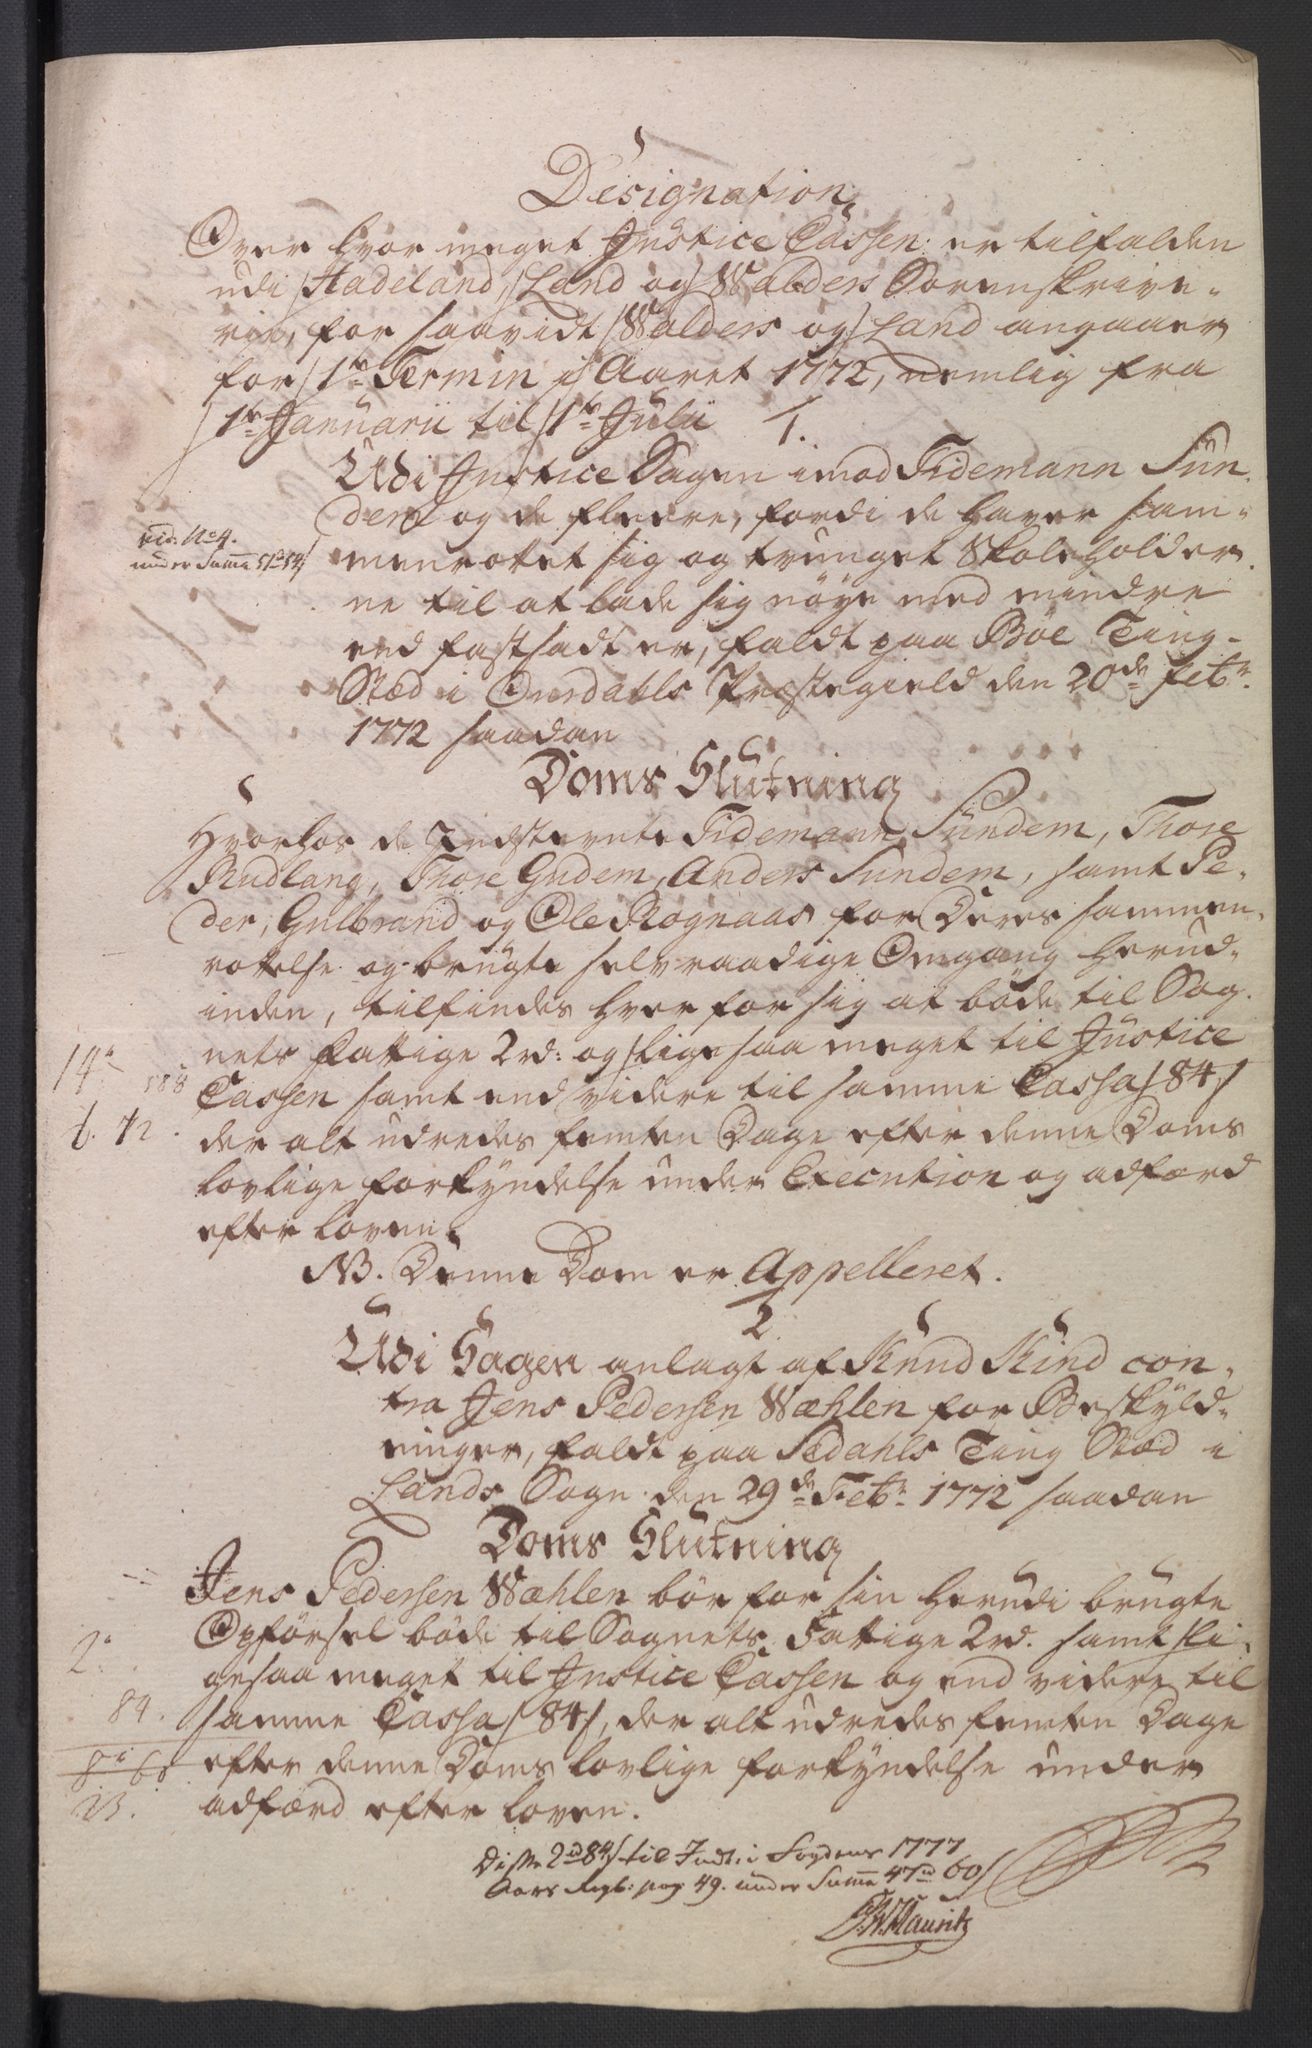 Designation
Over hvor meget Justice Cassen er tilfalden
udi Hadeland, Land og Walders Sorenskrive-
rie, for saavidt Walders og Land angaaer
for 1te Termin i Aaret 1772, nemlig fra
1te Januarii til 1te Julii
1.
Udi Justice Sagen imod Tidemann Sün-
dem og de fleere, fordi de haver sam-
vid: No 4.
under Summa
menrottet sig og tvunget Skoleholder-
ne til at lade sig nöye med mindre
end fastsadt er, faldt paa Böe Ting-
Stæd i Ourdahls Præstegield den 20de Febr.
1772 saadan
Doms Slutning
Hvorfor de Indstevnte Tidemann Sündem, Thore
Rudlang, Thore Gudem, Anders Sundem, samt Pe-
der, Gulbrand og Ole Rognaas for Deres sammen-
rottelse og brugte selvraadige Omgang herud-
inden, tilfindes hver for sig at böde til Sog-
nets Fattige 2rd: og lige saa meget til Justice
14
588
Cassen samt end videre til samme Cassa 84 s
6. 12.
der alt udredes femten Dage efter denne Doms
lovlige forkyndelse under Execution og adfærd
efter loven.
NB. Denne Dom er Appelleret.
2
Udi Sagen anlagt af Knud Kind con-
tra Jens Pedersen Wæhlen for Beskyld-
ninger, faldt paa Sedahls Ting Stæd i
Lands Sogn den 29de Febr. 1772 saadan
Doms Slutning
Jens Pedersen Wæhlen bör for sin herudi brugte
Opförsel böde til Sognets Fattige 2rd. samt li-
2
gesaa meget til Justice Cassen og end videre til
84.
samme Cassa 84 s, der alt udredes femten Dage
efter denne Doms lovlige forkyndelse under
adfærd efter loven.
Disse 2rd 84 s til Indt: i Fogdens 1777
Aars Regl: pag: 49. under Summa 47rd 60 s
Mauritz